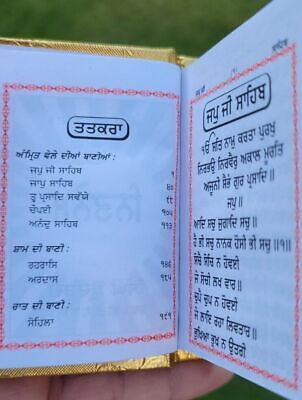 ਤਤਕਰਾ
ਅੰਮ੍ਰਿਤ ਵੇਲੇ ਦੀਆਂ ਬਾਣੀਆਂ :
ਜਪੁ ਜੀ ਸਾਹਿਬ ੧
ਜਾਪੁ ਸਾਹਿਬ ੪੦
ਤ੍ਵ ਪ੍ਰਸਾਦਿ ਸਵੱਯੇ
ਚੌਪਈ ੧੦੨
ਅਨੰਦੁ ਸਾਹਿਬ ੧੧੩
ਸ਼ਾਮ ਦੀ ਬਾਣੀ :
ਰਹਰਾਸਿ ੧੪੬
ਅਰਦਾਸ ੧੮੫
ਰਾਤ ਦੀ ਬਾਣੀ :
ਸੋਹਿਲਾ ੧੯੧
ਜਪੁ ਜੀ ਸਾਹਿਬ
ੴ ਸਤਿ ਨਾਮੁ ਕਰਤਾ ਪੁਰਖੁ
ਨਿਰਭਉ ਨਿਰਵੈਰੁ ਅਕਾਲ ਮੂਰਤਿ
ਅਜੂਨੀ ਸੈਭੰ ਗੁਰ ਪ੍ਰਸਾਦਿ॥
ਜਪੁ॥
ਆਦਿ ਸਚੁ ਜੁਗਾਦਿ ਸਚੁ॥
ਹੈ ਭੀ ਸਚੁ ਨਾਨਕ ਹੋਸੀ ਭੀ ਸਚੁ॥੧॥
ਸੋਚੈ ਸੋਚਿ ਨ ਹੋਵਈ
ਜੇ ਸੋਚੀ ਲਖ ਵਾਰ॥
ਚੁਪੈ ਚੁਪ ਨ ਹੋਵਈ
ਜੇ ਲਾਇ ਰਹਾ ਲਿਵਤਾਰ॥
ਭੁਖਿਆ ਭੁਖ ਨ ਉਤਰੀ